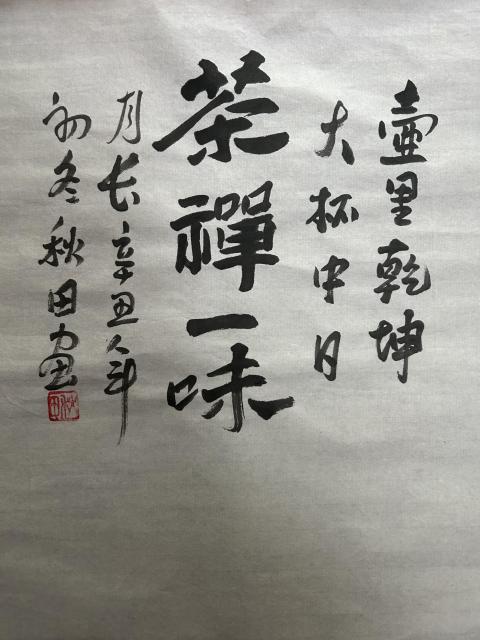 壶里乾坤
大杯中日
茶禪一味
月长辛丑年
初冬秋田画